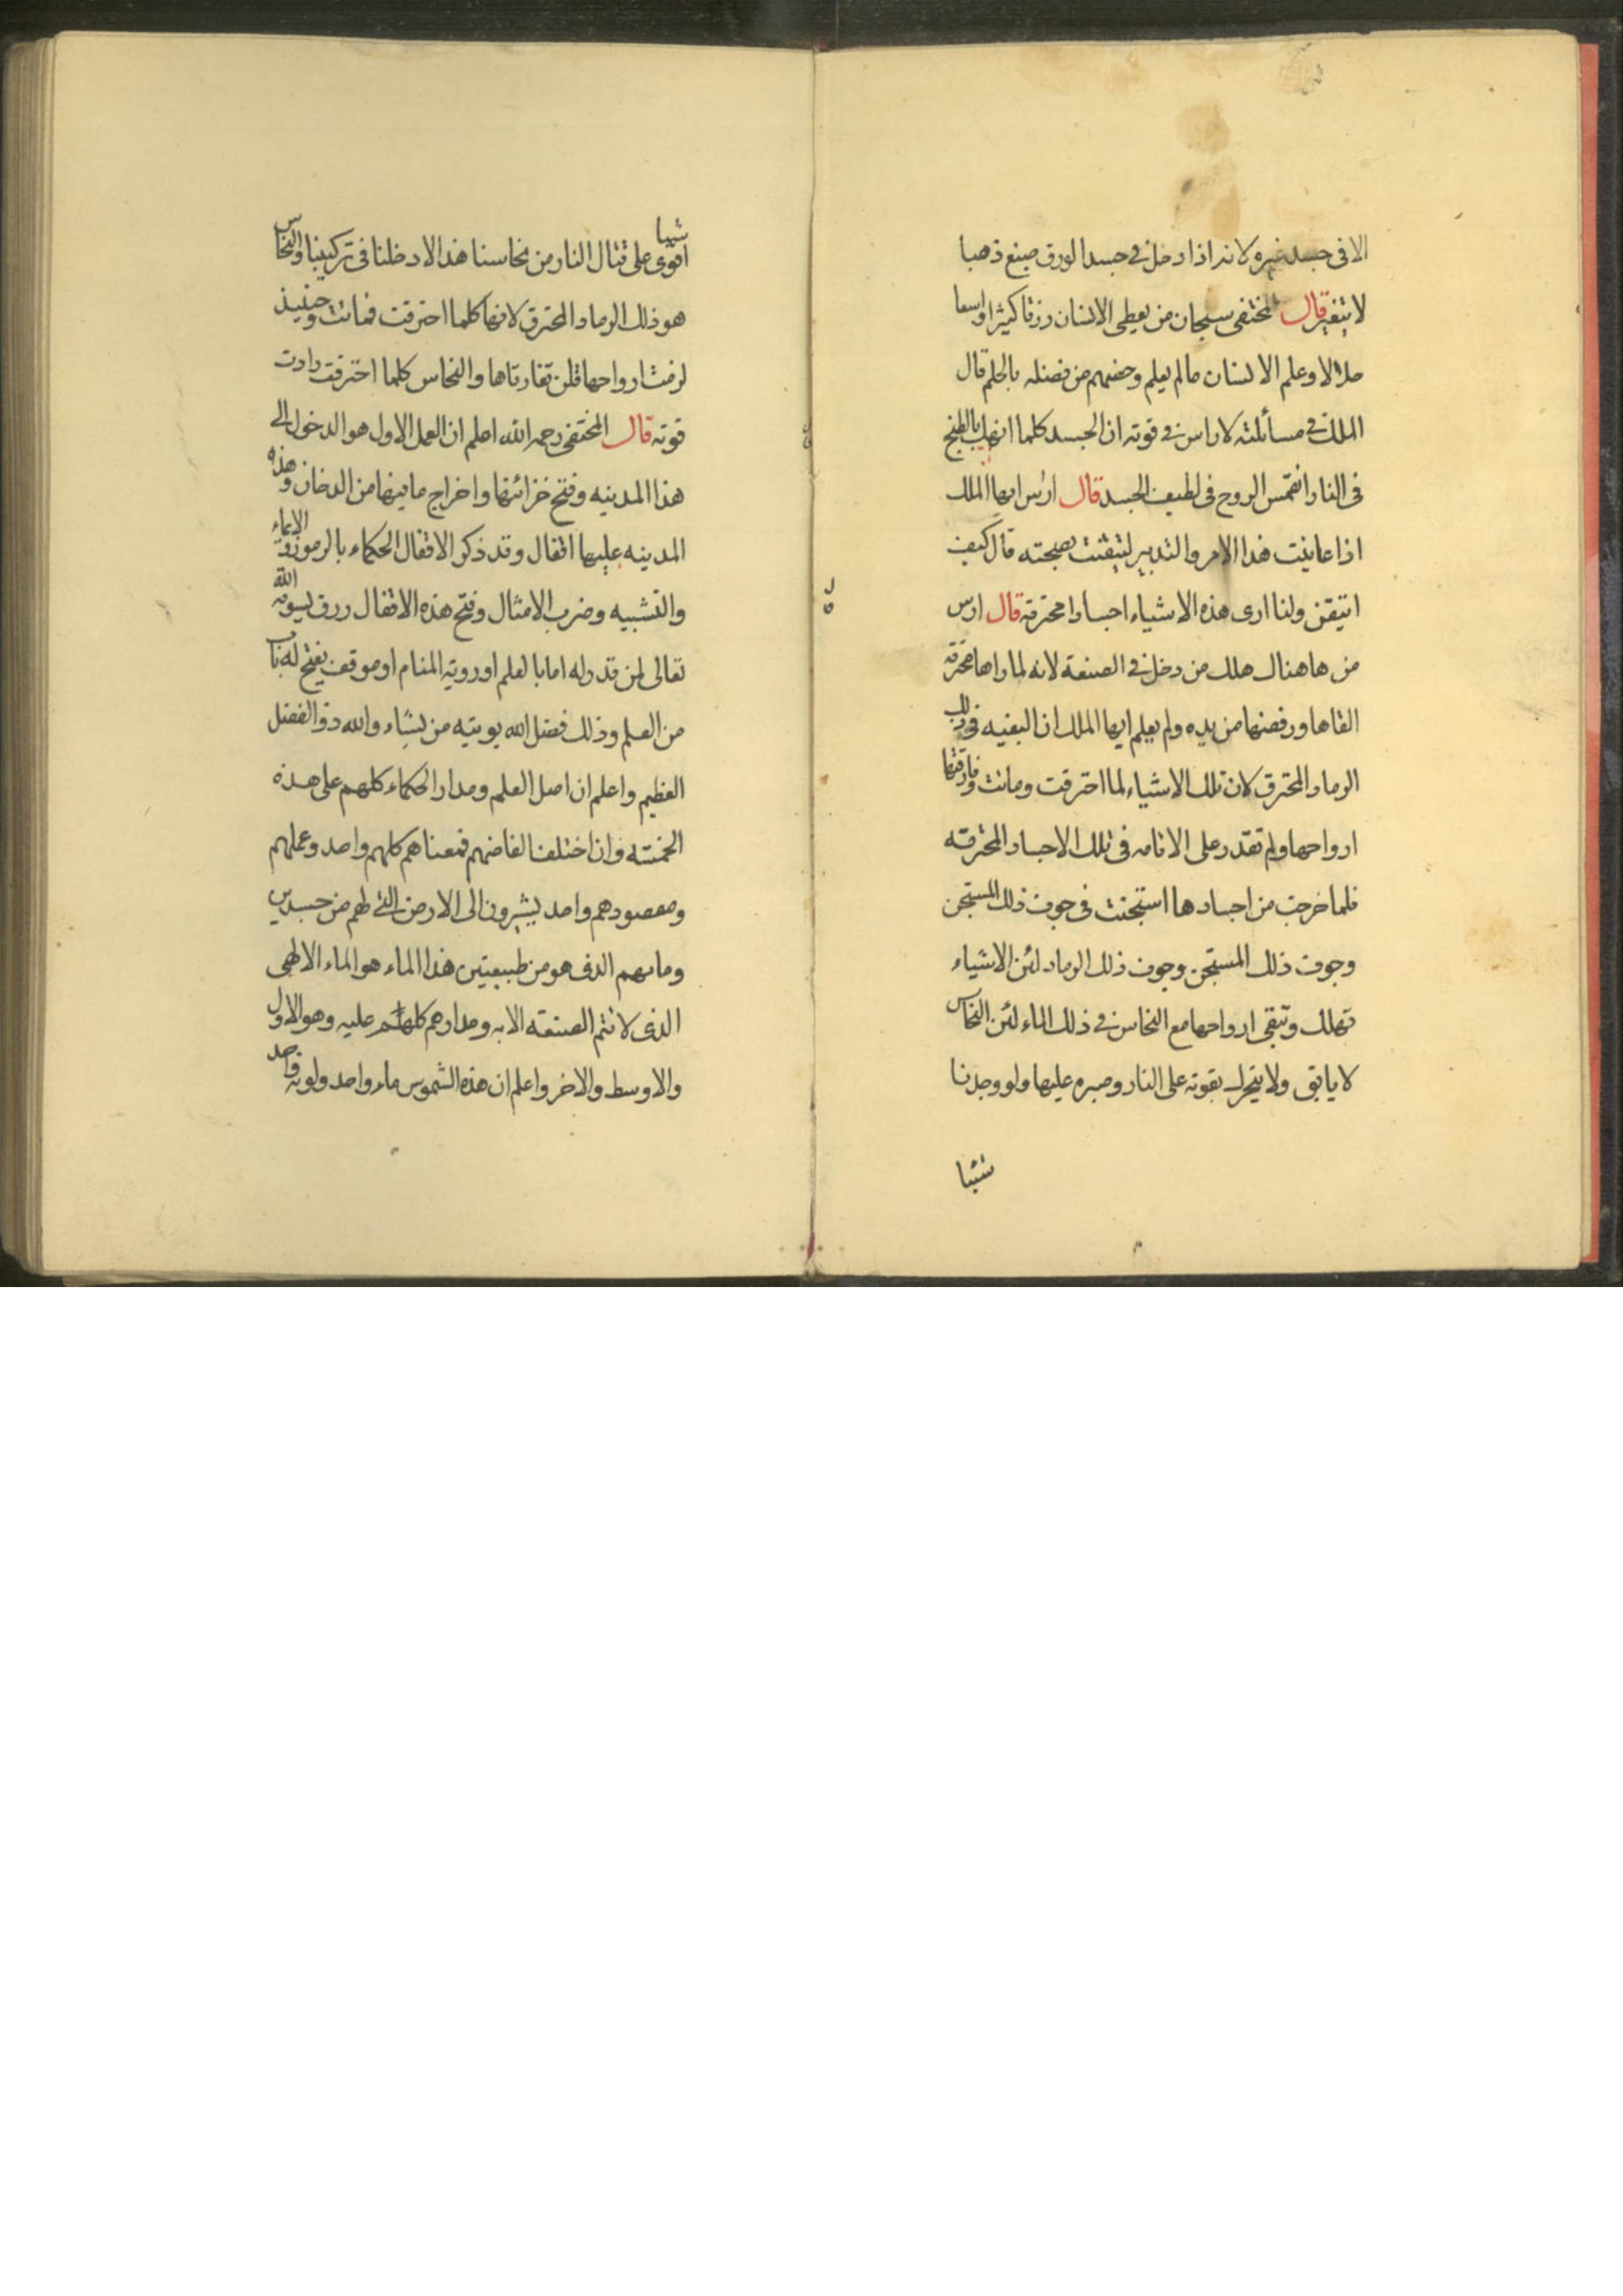 الا فى جسد غيره لانه اذا دخل فى جسد الورق صبغ ذهبا
لا يتغير قال المختفى سبحان من يعطى الانسان رزقا كثيرا واسعا
حلالا وعلم الانسان مالم يعلم وخصهم من فضله بالحلم قال
الملك فى مسائلته لاراس فى قوته ان الجسد كلما انهك بالطبخ
فى النار انغمس الروح فى لطيف الجسد قال ارس ايها الملك
اذا عاينت هذا الامر والتدبير لتيقنت بصحته قال كيف
اتيقن ولنا ارى هذه الاشياء اجسادا محترقة قال ارس
من هاهنا هلك من دخل فى الصنعة لانه لما راها محترقه
القاها ورفضها من يده ولم يعلم ايها الملك ان البغيه فى ذلك
الرماد المحترق لان تلك الاشياء لما احترقت وماتت وفارقتها
ارواحها ولم تقدر على الاقامه فى تلك الاجساد المحترقه
فلما خرجت من اجسادها استجنت فى جوف ذلك المستجن
وجوف ذلك المستجن وجوف ذلك الرماد لئن الاشياء
تهلك وتبقى ارواحها مع النحاس فى ذلك الماء لئن النحاس
لا يابق ولا يتحرك بقوته على النار وصبره عليها ولو وجدنا
شيئا
شيئا
اقوى على قتال النار من نحاسنا هذا لادخلنا فى تركيبنا والنحاس
هو ذلك الرماد المحترق لانها كلما احترقت فماتت وحينيذ
لزمت ارواحها فلن تفارقاها والنحاس كلما احترقت زادت
قوته قال المختفى رحمه الله اعلم ان العمل الاول هو الدخول الى
هذا المدينه وفتح خزائنها واخراج مافيها من الدخان وهذه
المدينه عليها اقفال وقد ذكر الاقفال الحكماء بالرموز والايماء
والتشبيه وضرب الامثال وفتح هذه الاقفال رزق يسوقه الله
تعالى لمن قدر له اما بالعلم او روية المنام او موقف يفتح له باب
من العلم وذلك فضل الله يوتيه من يشاء والله ذو الفضل
العظيم واعلم ان اصل العلم ومدار الحكماء كلهم على هذه
الخمسة وان اختلف الفاضهم فمعناهم كلهم واحد وعملهم
ومقصودهم واحد يشيرون الى الارض التى لهم من جسدين
وماىهم الذى هو من طبيعتين هذا الماء هو الماء الالهى
الذى لا تتم الصنعة الا به ومدارهم كلهم عليه وهو الاول
والاوسط والاخر واعلم ان هذه الشموس ماء واحد ولونه واحد